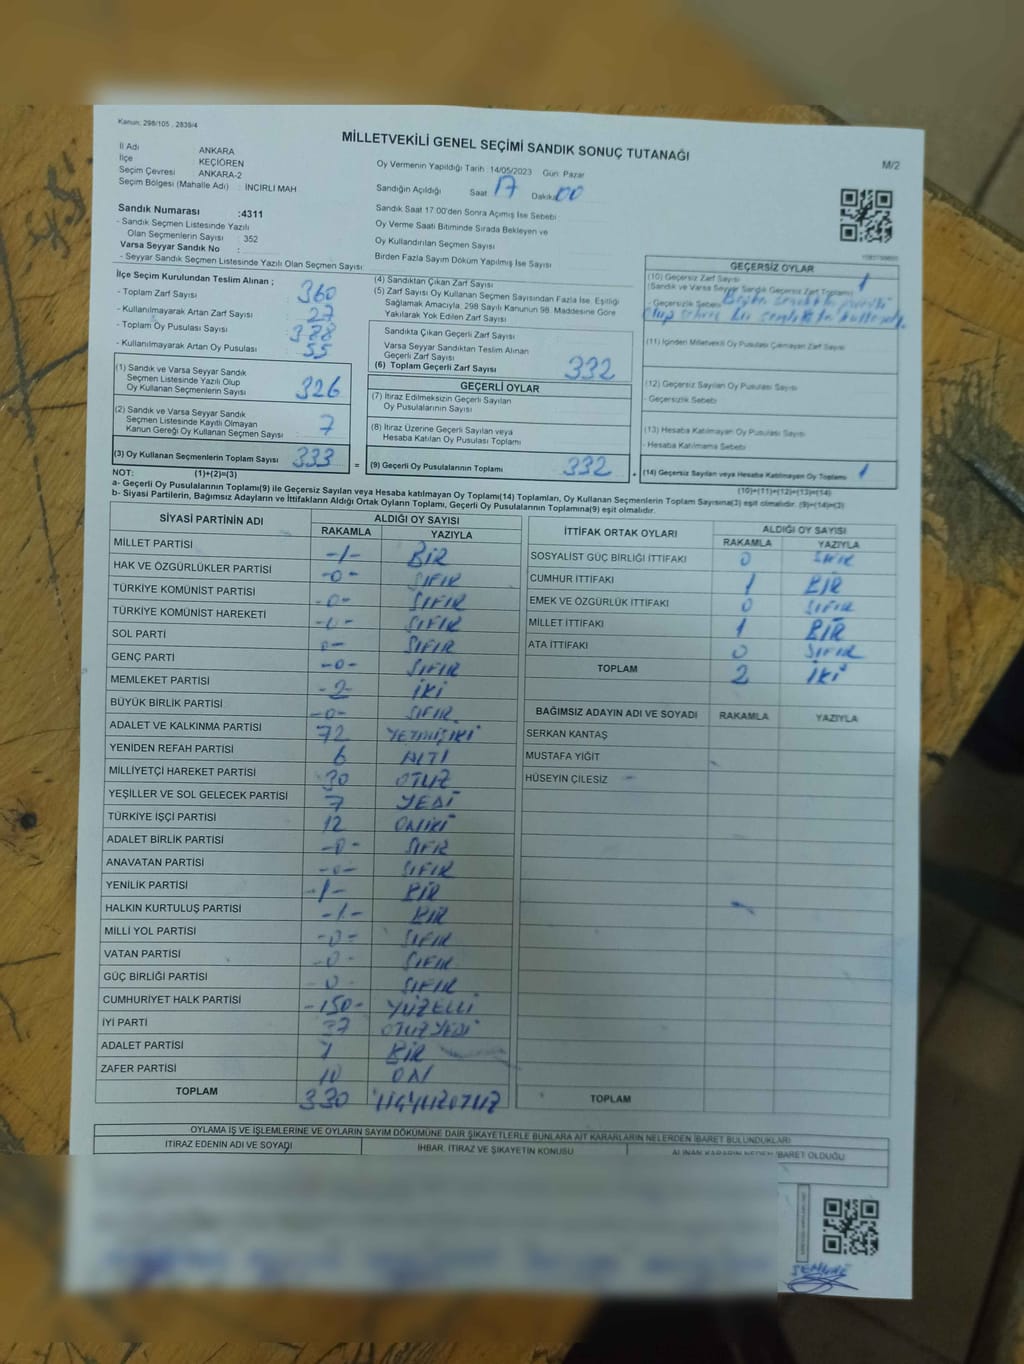 Kanun; 298/105 , 2839/4
MİLLETVEKİLİ GENEL SEÇİMİ SANDIK SONUÇ TUTANAĞI
M/2
İl Adı ANKARA
İlçe KEÇİÖREN
Seçim Çevresi ANKARA-2
Seçim Bölgesi (Mahalle Adı) : İNCİRLİ MAH
Oy Vermenin Yapıldığı Tarih :14/05/2023 Gün: Pazar
Sandığın Açıldığı Saat 17 Dakika 00
Sandık Numarası :4311
- Sandık Seçmen Listesinde Yazılı
Olan Seçmenlerin Sayısı : 352
Varsa Seyyar Sandık No :
- Seyyar Sandık Seçmen Listesinde Yazılı Olan Seçmen Sayısı:
Sandık Saat 17:00'den Sonra Açımış İse Sebebi
Oy Verme Saati Bitiminde Sırada Bekleyen ve
Oy Kullandırılan Seçmen Sayısı
Birden Fazla Sayım Döküm Yapılmış İse Sayısı
İlçe Seçim Kurulundan Teslim Alınan ;
- Toplam Zarf Sayısı : 360
- Kullanılmayarak Artan Zarf Sayısı : 27
- Toplam Oy Pusulası Sayısı : 388
- Kullanılmayarak Artan Oy Pusulası : 55
(1) Sandık ve Varsa Seyyar Sandık
Seçmen Listesinde Yazılı Olup
Oy Kullanan Seçmenlerin Sayısı : 326
(2) Sandık ve Varsa Seyyar Sandık
Seçmen Listesinde Kayıtlı Olmayan
Kanun Gereği Oy Kullanan Seçmen Sayısı : 7
(3) Oy Kullanan Seçmenlerin Toplam Sayısı : 333
(4) Sandıktan Çıkan Zarf Sayısı
(5) Zarf Sayısı Oy Kullanan Seçmen Sayısından Fazla İse, Eşitliği
Sağlamak Amacıyla, 298 Sayılı Kanunun 98. Maddesine Göre
Yakılarak Yok Edilen Zarf Sayısı
Sandıkta Çıkan Geçerli Zarf Sayısı
Varsa Seyyar Sandıktan Teslim Alınan
Geçerli Zarf Sayısı
(6) Toplam Geçerli Zarf Sayısı 332
GEÇERLİ OYLAR
(7) İtiraz Edilmeksizin Geçerli Sayılan
Oy Pusulalarının Sayısı
(8) İtiraz Üzerine Geçerli Sayılan veya
Hesaba Katılan Oy Pusulası Toplamı
= (9) Geçerli Oy Pusulalarının Toplamı 332
GEÇERSİZ OYLAR
(10) Geçersiz Zarf Sayısı 1
(Sandık ve Varsa Seyyar Sandık Geçersiz Zarf Toplamı)
- Geçersizlik Sebebi
(11) İçinden Milletvekili Oy Pusulası Çıkmayan Zarf Sayısı
(12) Geçersiz Sayılan Oy Pusulası Sayısı
- Geçersizlik Sebebi
(13) Hesaba Katılmayan Oy Pusulası Sayısı
- Hesaba Katılmama Sebebi
+ (14) Geçersiz Sayılan veya Hesaba Katılmayan Oy Toplamı 1
NOT: (1)+(2)=(3)
(10)+(11)+(12)+(13)=(14)
a- Geçerli Oy Pusulasının Toplamı(9) ile Geçersiz Sayılan veya Hesaba katılmayan Oy Toplamı(14) Toplamları, Oy Kullanan Seçmenlerin Toplam Sayısına(3) eşit olmalıdır. (9)+(14)=(3)
b- Siyasi Partilerin, Bağımsız Adayların ve İttifakların Aldığı Ortak Oyların Toplamı, Geçerli Oy Pusulalarının Toplamına(9) eşit olmalıdır.
SİYASİ PARTİNİN ADI ALDIĞI OY SAYISI
RAKAMLA YAZIYLA
MİLLET PARTİSİ -1- BİR
HAK VE ÖZGÜRLÜKLER PARTİSİ -0- SIFIR
TÜRKİYE KOMÜNİST PARTİSİ -0- SIFIR
TÜRKİYE KOMÜNİST HAREKETİ -0- SIFIR
SOL PARTİ 0- SIFIR
GENÇ PARTİ -0- SIFIR
MEMLEKET PARTİSİ -2- İKİ
BÜYÜK BİRLİK PARTİSİ -0- SIFIR
ADALET VE KALKINMA PARTİSİ 72 YETMİŞİKİ
YENİDEN REFAH PARTİSİ 6 ALTI
MİLLİYETÇİ HAREKET PARTİSİ 30 OTUZ
YEŞİLLER VE SOL GELECEK PARTİSİ 7 YEDİ
TÜRKİYE İŞÇİ PARTİSİ 12 ONİKİ
ADALET BİRLİK PARTİSİ -0- SIFIR
ANAVATAN PARTİSİ -0- SIFIR
YENİLİK PARTİSİ -1- BİR
HALKIN KURTULUŞ PARTİSİ -1- BİR
MİLLİ YOL PARTİSİ -0- SIFIR
VATAN PARTİSİ -0- SIFIR
GÜÇ BİRLİĞİ PARTİSİ -0- SIFIR
CUMHURİYET HALK PARTİSİ -150- YÜZELLİ
İYİ PARTİ 37 OTUZYEDİ
ADALET PARTİSİ 1 BİR
ZAFER PARTİSİ 10 ON
TOPLAM 330 ÜÇYÜZOTUZ
İTTİFAK ORTAK OYLARI ALDIĞI OY SAYISI
RAKAMLA YAZIYLA
SOSYALİST GÜÇ BİRLİĞİ İTTİFAKI 0 SIFIR
CUMHUR İTTİFAKI 1 BİR
EMEK VE ÖZGÜRLÜK İTTİFAKI 0 SIFIR
MİLLET İTTİFAKI 1 BİR
ATA İTTİFAKI 0 SIFIR
TOPLAM 2 İKİ
BAĞIMSIZ ADAYIN ADI VE SOYADI RAKAMLA YAZIYLA
SERKAN KANTAŞ
MUSTAFA YİĞİT
HÜSEYİN ÇİLESİZ
TOPLAM
OYLAMA İŞ VE İŞLEMLERİNE VE OYLARIN SAYIM DÖKÜMÜNE DAİR ŞİKAYETLERLE BUNLARA AİT KARARLARIN NELERDEN İBARET BULUNDUKLARI
İTİRAZ EDENİN ADI VE SOYADI İHBAR, İTİRAZ VE ŞİKAYETİN KONUSU ALINAN KARARIN NEDEN İBARET OLDUĞU